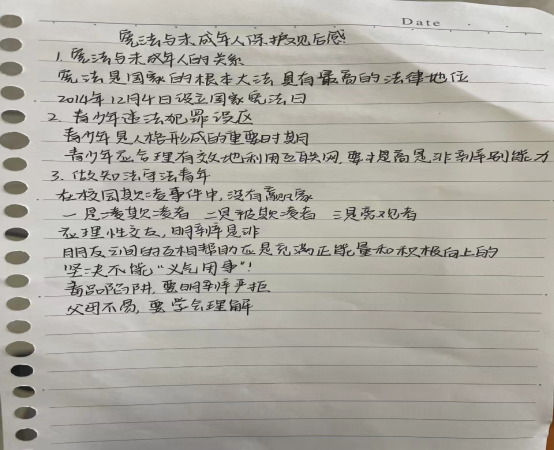 Date
宪法与未成年人保护观后感
1. 宪法与未成年人的关系
宪法是国家的根本大法具有最高的法律地位
2014年12月4日设立国家宪法日
2. 青少年违法犯罪误区
青少年是人格形成的重要时期
青少年应合理有效地利用互联网,要提高是非辨别能力
3. 做知法守法青年
在校园欺凌事件中,没有赢家
一是凌欺凌者 二是被欺凌者 三是旁观者
应理性交友,明辨是非
朋友之间的互相帮助应是充满正能量和积极向上的
坚决不能“义气用事”!
毒品陷阱,要明辨严拒
父母不易,要学会理解